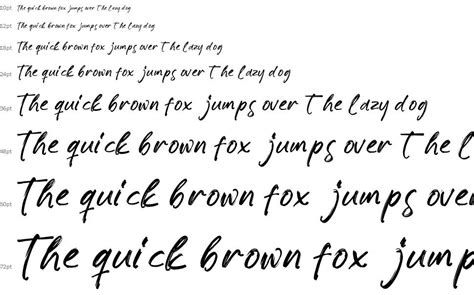 10pt The quick brown fox jumps over The lazy dog
12pt The quick brown fox jumps over The lazy dog
18pt The quick brown fox jumps over The lazy dog
24pt The quick brown fox jumps over The lazy dog
36pt The quick brown fox jumps over The lazy dog
48pt The quick brown fox jumps over The l
60pt The quick brown fox jumps over
72pt The quick brown fox jump